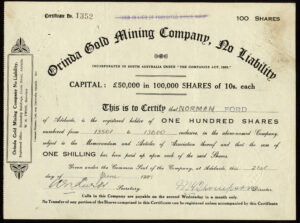 Certificate No. 1352
100 SHARES
Orinda Gold Mining Company, No Liability
INCORPORATED IN SOUTH AUSTRALIA UNDER "THE COMPANIES ACT, 1892."
CAPITAL: £50,000 in 100,000 SHARES of 10s. each
This is to Certify that NORMAN FORD
of Adelaide, is the registered holder of ONE HUNDRED SHARES
numbered from 13501 to 13600 inclusive, in the above-named Company,
subject to the Memorandum and Articles of Association thereof and that the sum of
ONE SHILLING has been paid up upon each of the said Shares.
Given under the Common Seal of the Company, at Adelaide, this 21st
day of
Secretary
Director
Calls in this Company are payable on the second Wednesday in a month only.
No Transfer of any portion of the Shares comprised in this Certificate can be registered unless accompanied by this Certificate
Orinda Gold Mining Company No Liability